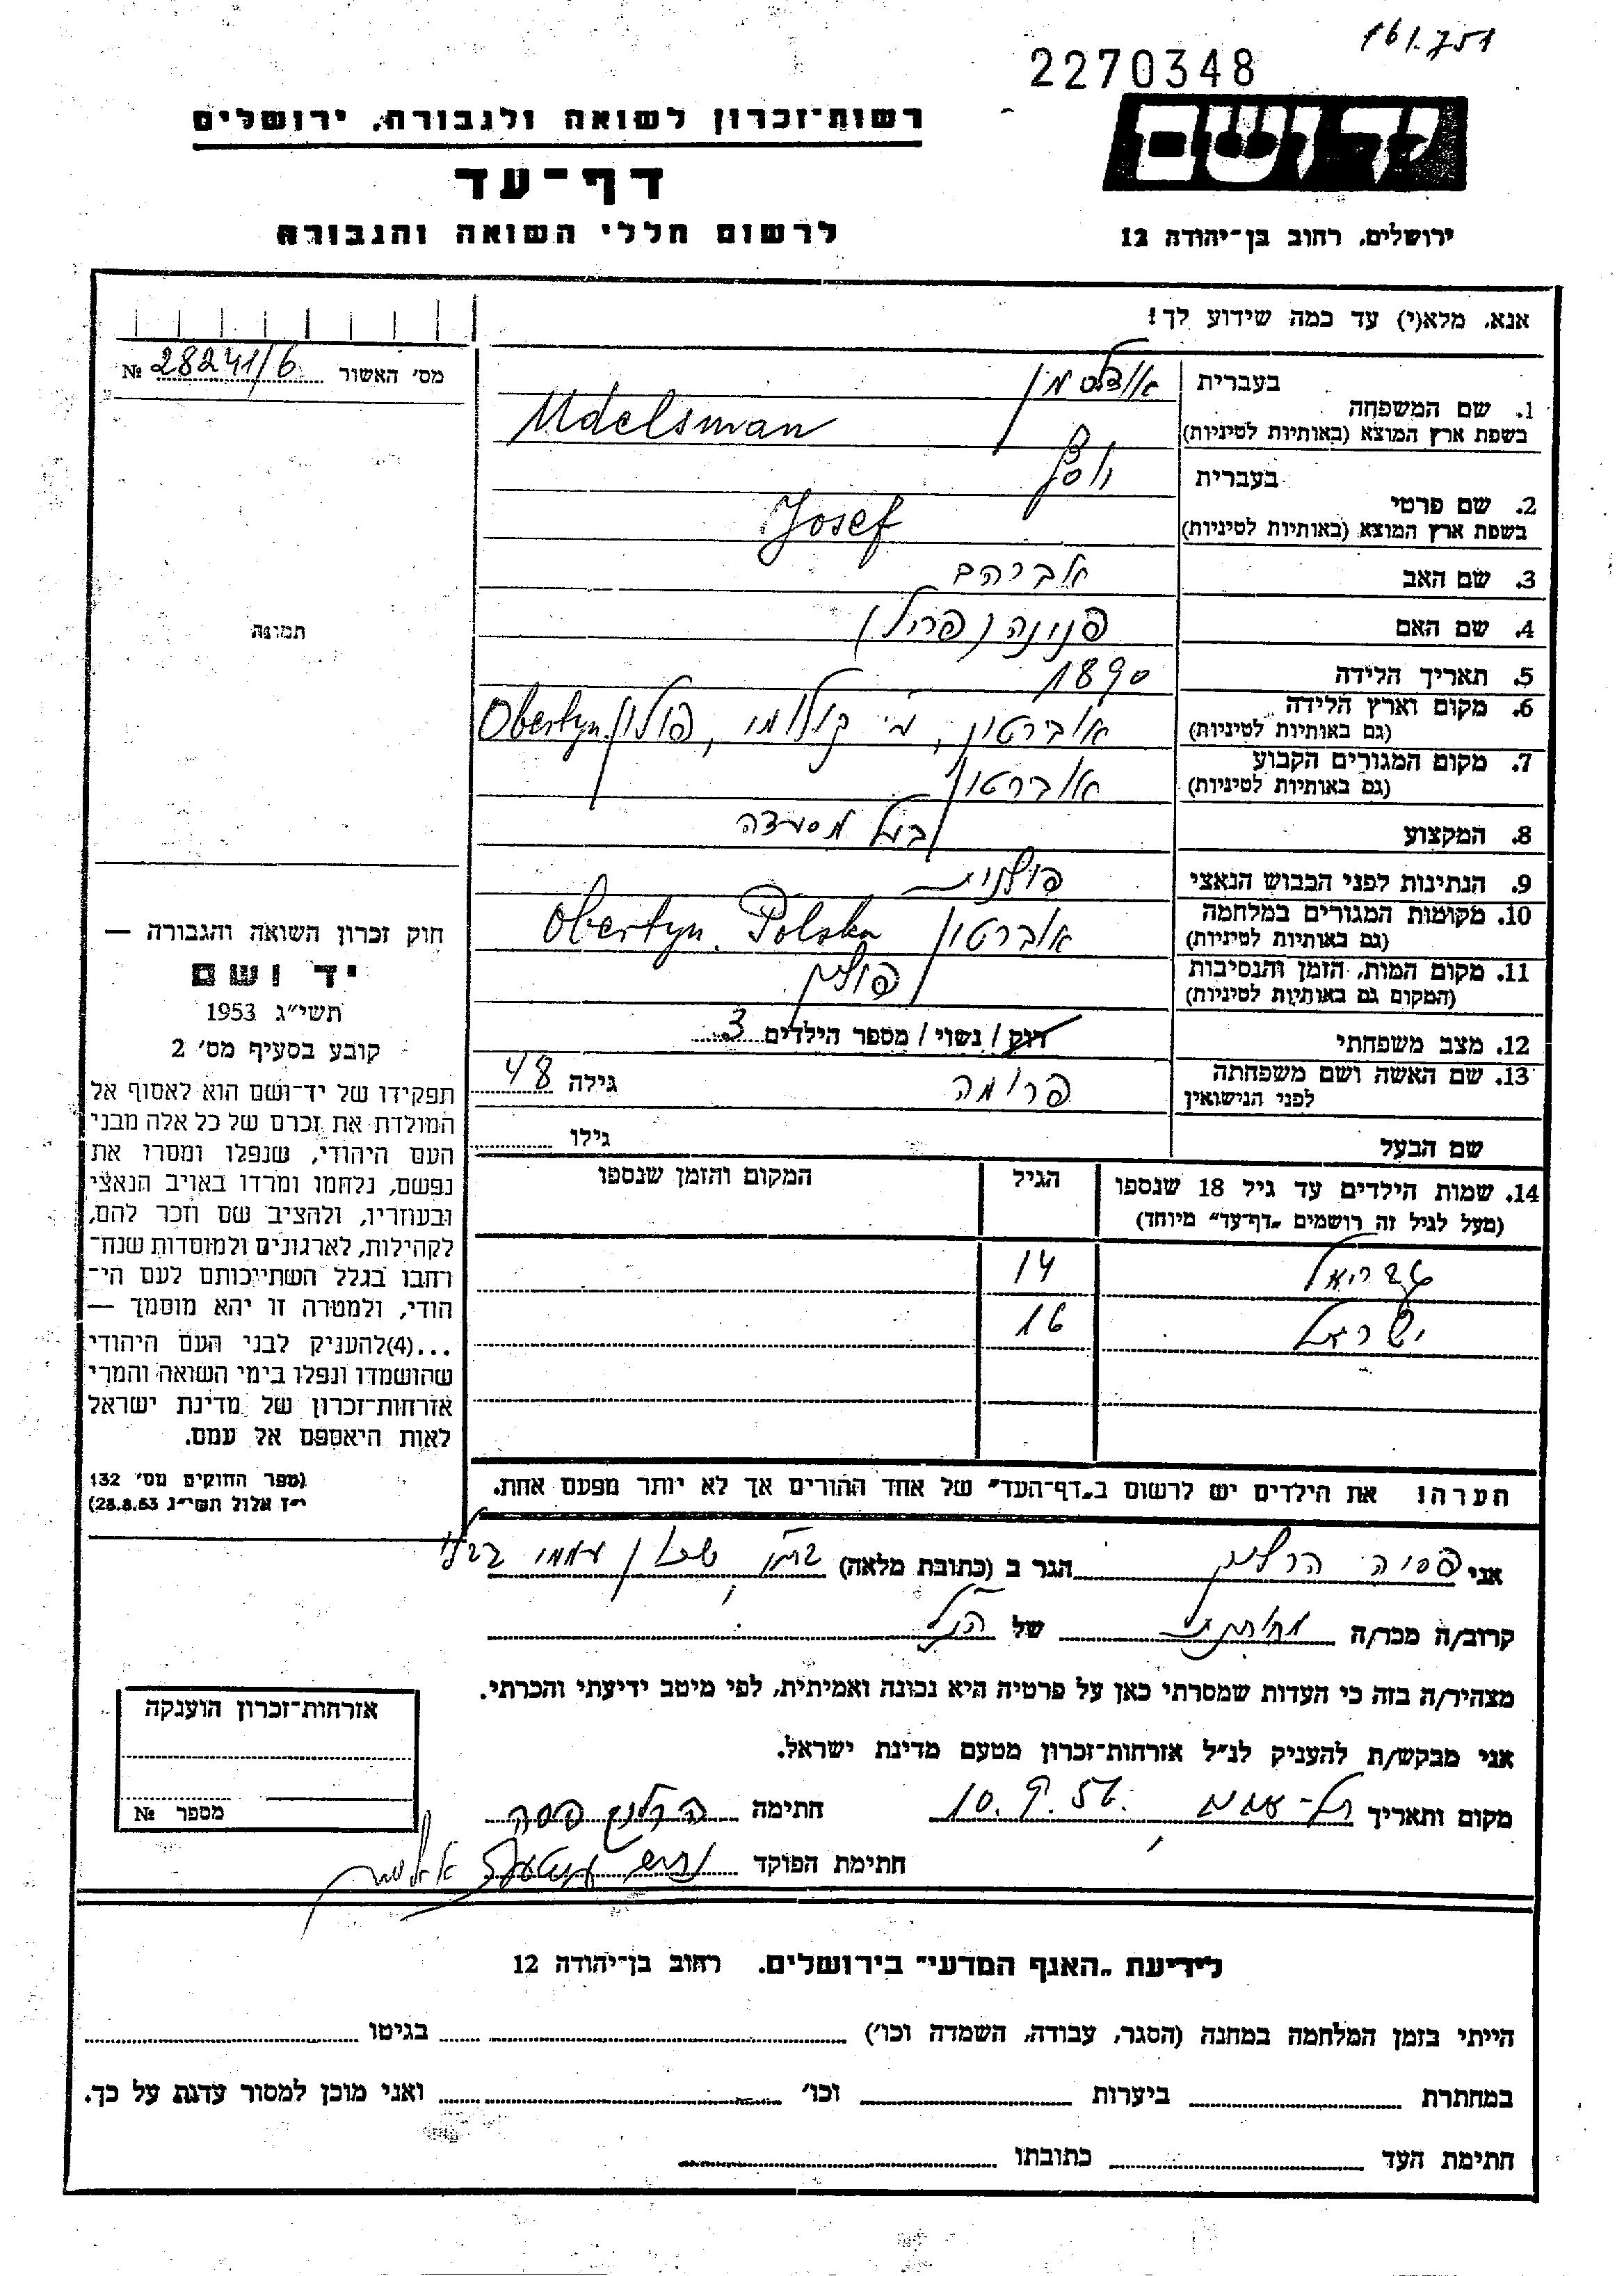 161.751
2270348
רשות־זכרון לשואה ולגבורה, ירושלים
דף־עד
לרשום חללי השואה והגבורה
יד ושם
ירושלים, רחוב בן־יהודה 12
אנא, מלא(י) עד כמה שידוע לך!
מס׳ האשור № 28241/6
תמונה
1. שם המשפחה
בעברית אודלסמן
בשפת ארץ המוצא (באותיות לטיניות) Udelsman
2. שם פרטי
בעברית יוסף
בשפת ארץ המוצא (באותיות לטיניות) Josef
3. שם האב אברהם
4. שם האם פנינה (פרל)
5. תאריך הלידה 1890
6. מקום וארץ הלידה
(גם באותיות לטיניות) אוברטין, קולומי, פולין Obertyn
7. מקום המגורים הקבוע
(גם באותיות לטיניות) אוברטין
8. המקצוע בעל מסעדה
9. הנתינות לפני הכבוש הנאצי פולנית
10. מקומות המגורים במלחמה
(גם באותיות לטיניות) אוברטין Obertyn. Polska
11. מקום המות, הזמן והנסיבות
(המקום גם באותיות לטיניות) פולין
12. מצב משפחתי רווק / נשוי / מספר הילדים 3
13. שם האשה ושם משפחתה
לפני הנישואין פרומה גילה 48
שם הבעל גילו
14. שמות הילדים עד גיל 18 שנספו
(מעל לגיל זה רושמים „דף־עד״ מיוחד)
הגיל
המקום והזמן שנספו
גבריאל 14
ישראל 16
הערה! את הילדים יש לרשום ב„דף־העד״ של אחד ההורים אך לא יותר מפעם אחת.
חוק זכרון השואה והגבורה —
יד ושם
תשי״ג 1953
קובע בסעיף מס׳ 2
תפקידו של יד־ושם הוא לאסוף אל
המולדת את זכרם של כל אלה מבני
העם היהודי, שנפלו ומסרו את
נפשם, נלחמו ומרדו באויב הנאצי
ובעוזריו, ולהציב שם וזכר להם,
לקהילות, לארגונים ולמוסדות שנח־
רחבו בגלל השתייכותם לעם הי־
הודי, ולמטרה זו יהא מוסמך —
...(4)להעניק לבני העם היהודי
שהושמדו ונפלו בימי השואה והמרי
אזרחות־זכרון של מדינת ישראל
לאות היאספם אל עמם.
(ספר החוקים מס׳ 132
י״ז אלול תשי״ג 28.8.53)
אני פסיה הרליג הגר ב (כתובת מלאה)
קרוב/ה מכר/ה של הנ״ל
מצהיר/ה בזה כי העדות שמסרתי כאן על פרטיה היא נכונה ואמיתית, לפי מיטב ידיעתי והכרתי.
אני מבקש/ת להעניק לנ״ל אזרחות־זכרון מטעם מדינת ישראל.
מקום ותאריך 10.9.56 חתימה
חתימת הפוקד
אזרחות־זכרון הוענקה
מספר №
לידיעת „האגף המדעי״ בירושלים. רחוב בן־יהודה 12
הייתי בזמן המלחמה במחנה (הסגר, עבודה, השמדה וכו׳) בגיטו
במחתרת ביערות וכו׳ ואני מוכן למסור עדות על כך.
חתימת העד כתובתו